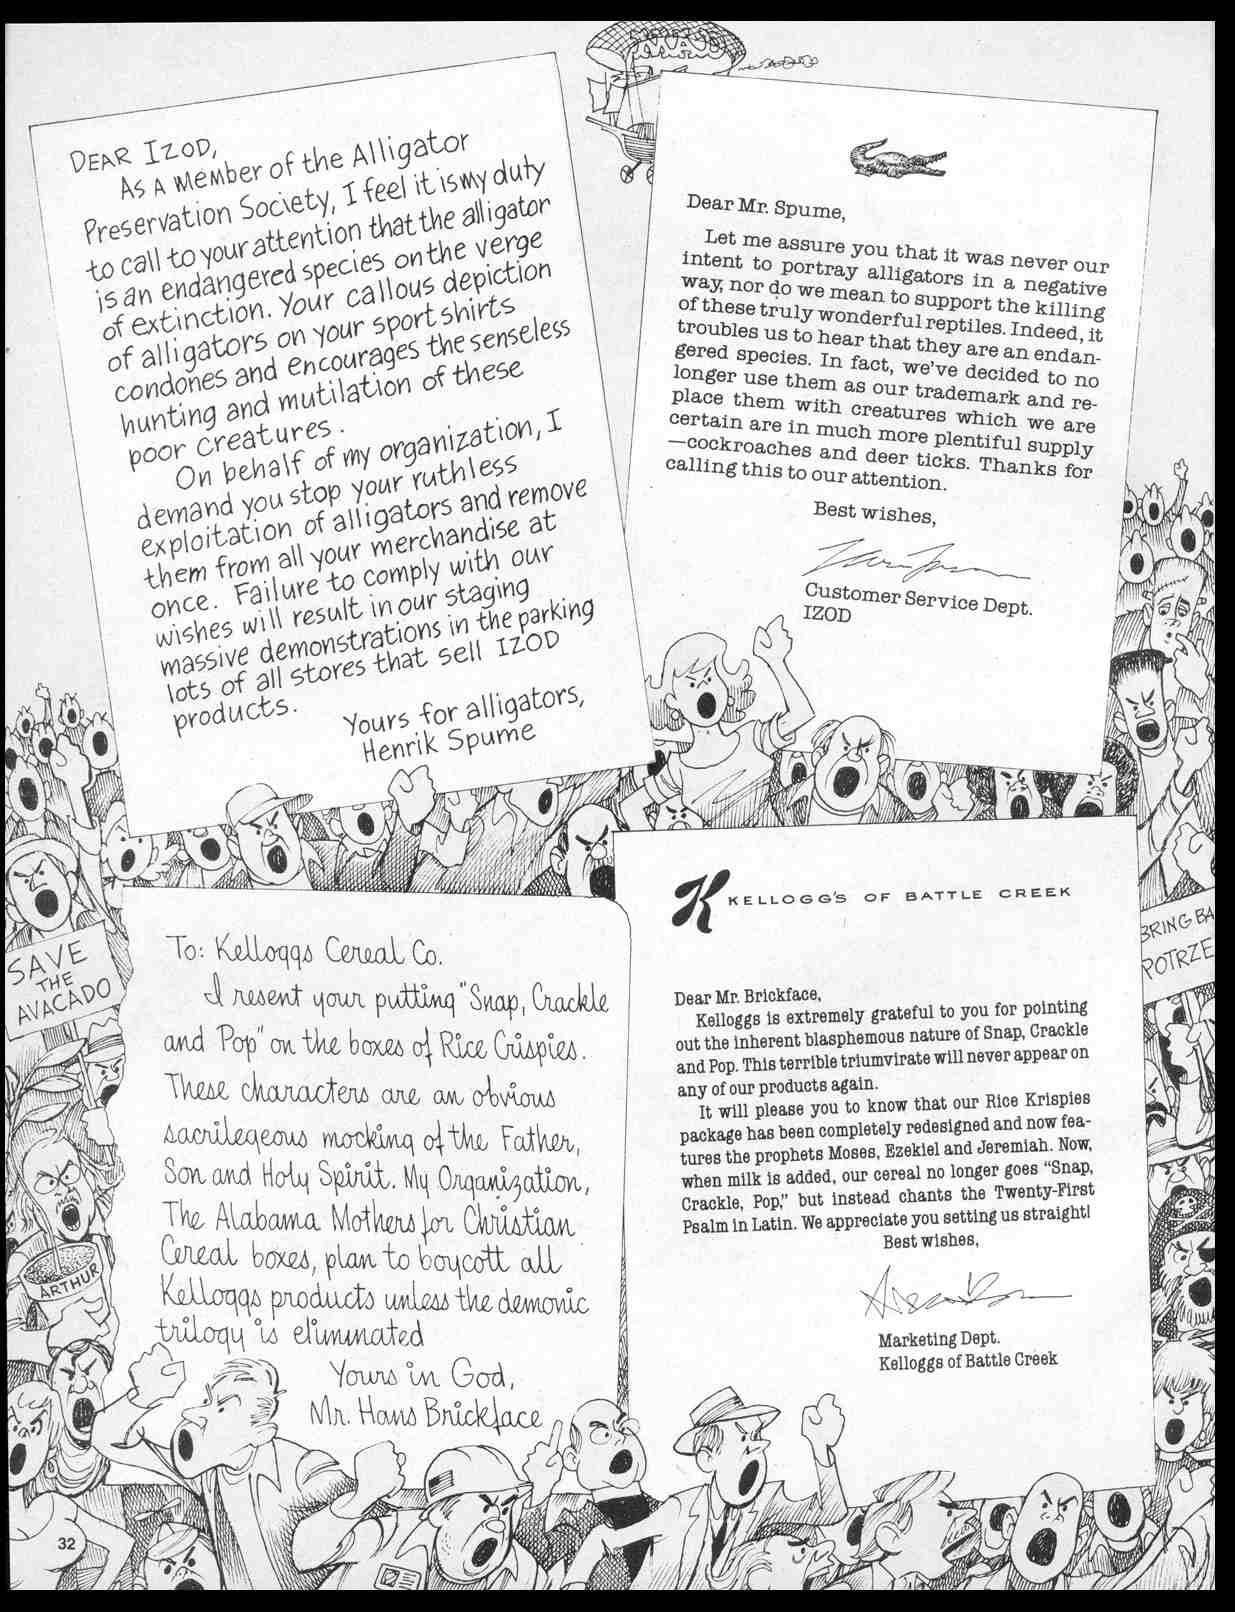 MAD
DEAR IZOD,
AS A MEMBER of the Alligator
Preservation Society, I feel it is my duty
to call to your attention that the alligator
is an endangered species on the verge
of extinction. Your callous depiction
of alligators on your sport shirts
condones and encourages the senseless
hunting and mutilation of these
poor creatures.
On behalf of my organization, I
demand you stop your ruthless
exploitation of alligators and remove
them from all your merchandise at
once. Failure to comply with our
wishes will result in our staging
massive demonstrations in the parking
lots of all stores that sell IZOD
products.
Yours for alligators,
Henrik Spume
Dear Mr. Spume,
Let me assure you that it was never our
intent to portray alligators in a negative
way, nor do we mean to support the killing
of these truly wonderful reptiles. Indeed, it
troubles us to hear that they are an endan-
gered species. In fact, we've decided to no
longer use them as our trademark and re-
place them with creatures which we are
certain are in much more plentiful supply
—cockroaches and deer ticks. Thanks for
calling this to our attention.
Best wishes,
Customer Service Dept.
IZOD
To: Kelloggs Cereal Co.
I resent your putting "Snap, Crackle
and Pop" on the boxes of Rice Crispies.
These characters are an obvious
sacrilegeous mocking of the Father,
Son and Holy Spirit. My Organization,
The Alabama Mothers for Christian
Cereal boxes, plan to boycott all
Kelloggs products unless the demonic
trilogy is eliminated
Yours in God,
Mr. Hans Brickface
K KELLOGG'S OF BATTLE CREEK
Dear Mr. Brickface,
Kelloggs is extremely grateful to you for pointing
out the inherent blasphemous nature of Snap, Crackle
and Pop. This terrible triumvirate will never appear on
any of our products again.
It will please you to know that our Rice Krispies
package has been completely redesigned and now fea-
tures the prophets Moses, Ezekiel and Jeremiah. Now,
when milk is added, our cereal no longer goes "Snap,
Crackle, Pop," but instead chants the Twenty-First
Psalm in Latin. We appreciate you setting us straight!
Best wishes,
Marketing Dept.
Kelloggs of Battle Creek
SAVE
THE
AVACADO
BRING BA
POTRZE
ARTHUR
32